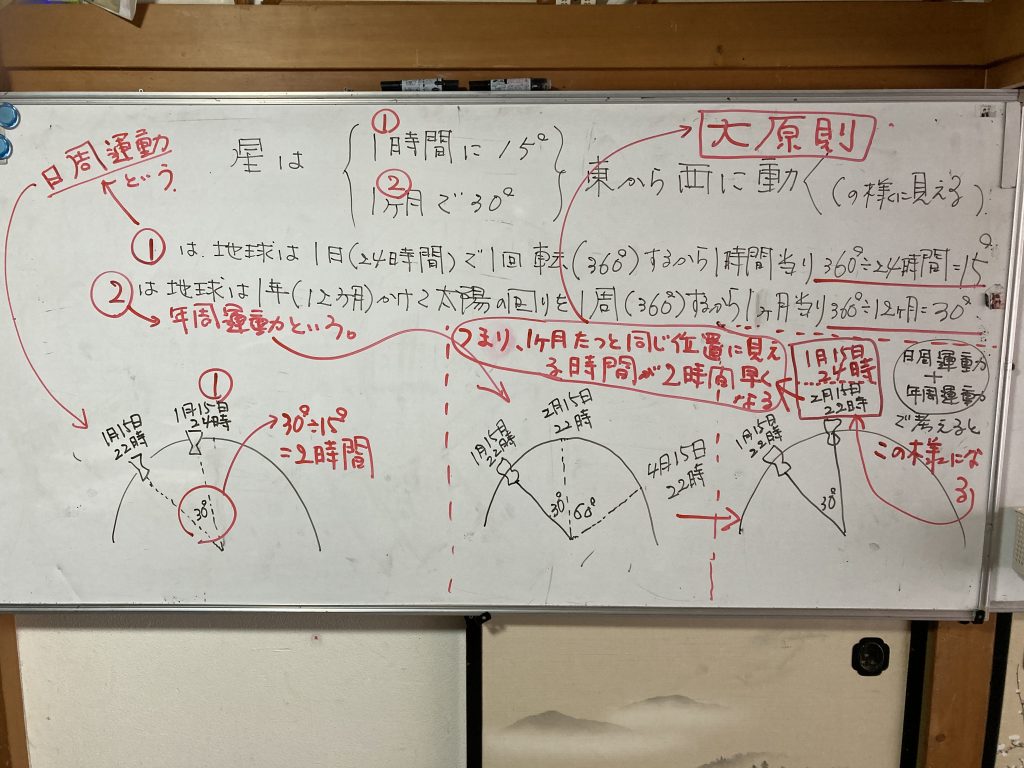 日周運動
という。
星は
①
1時間に15°
②
1ヶ月で30°
東から西に動く
大原則
(の様に見える)
①は、地球は1日(24時間)で1回転(360°)するから1時間当り360°÷24時間=15°
②は地球は1年(12ヶ月)かけて太陽の回りを1周(360°)するから1ヶ月当り360°÷12ヶ月=30°
年周運動という。
つまり、1ヶ月たつと同じ位置に見え
る時間が2時間早く
なる
1月15日
24時
2月15日
22時
日周運動
+
年周運動
で考えると
この様にな
る
①
1月15日
22時
1月15日
24時
30°
30°÷15°
=2時間
1月15日
22時
2月15日
22時
4月15日
22時
30°
60°
1月15日
22時
30°